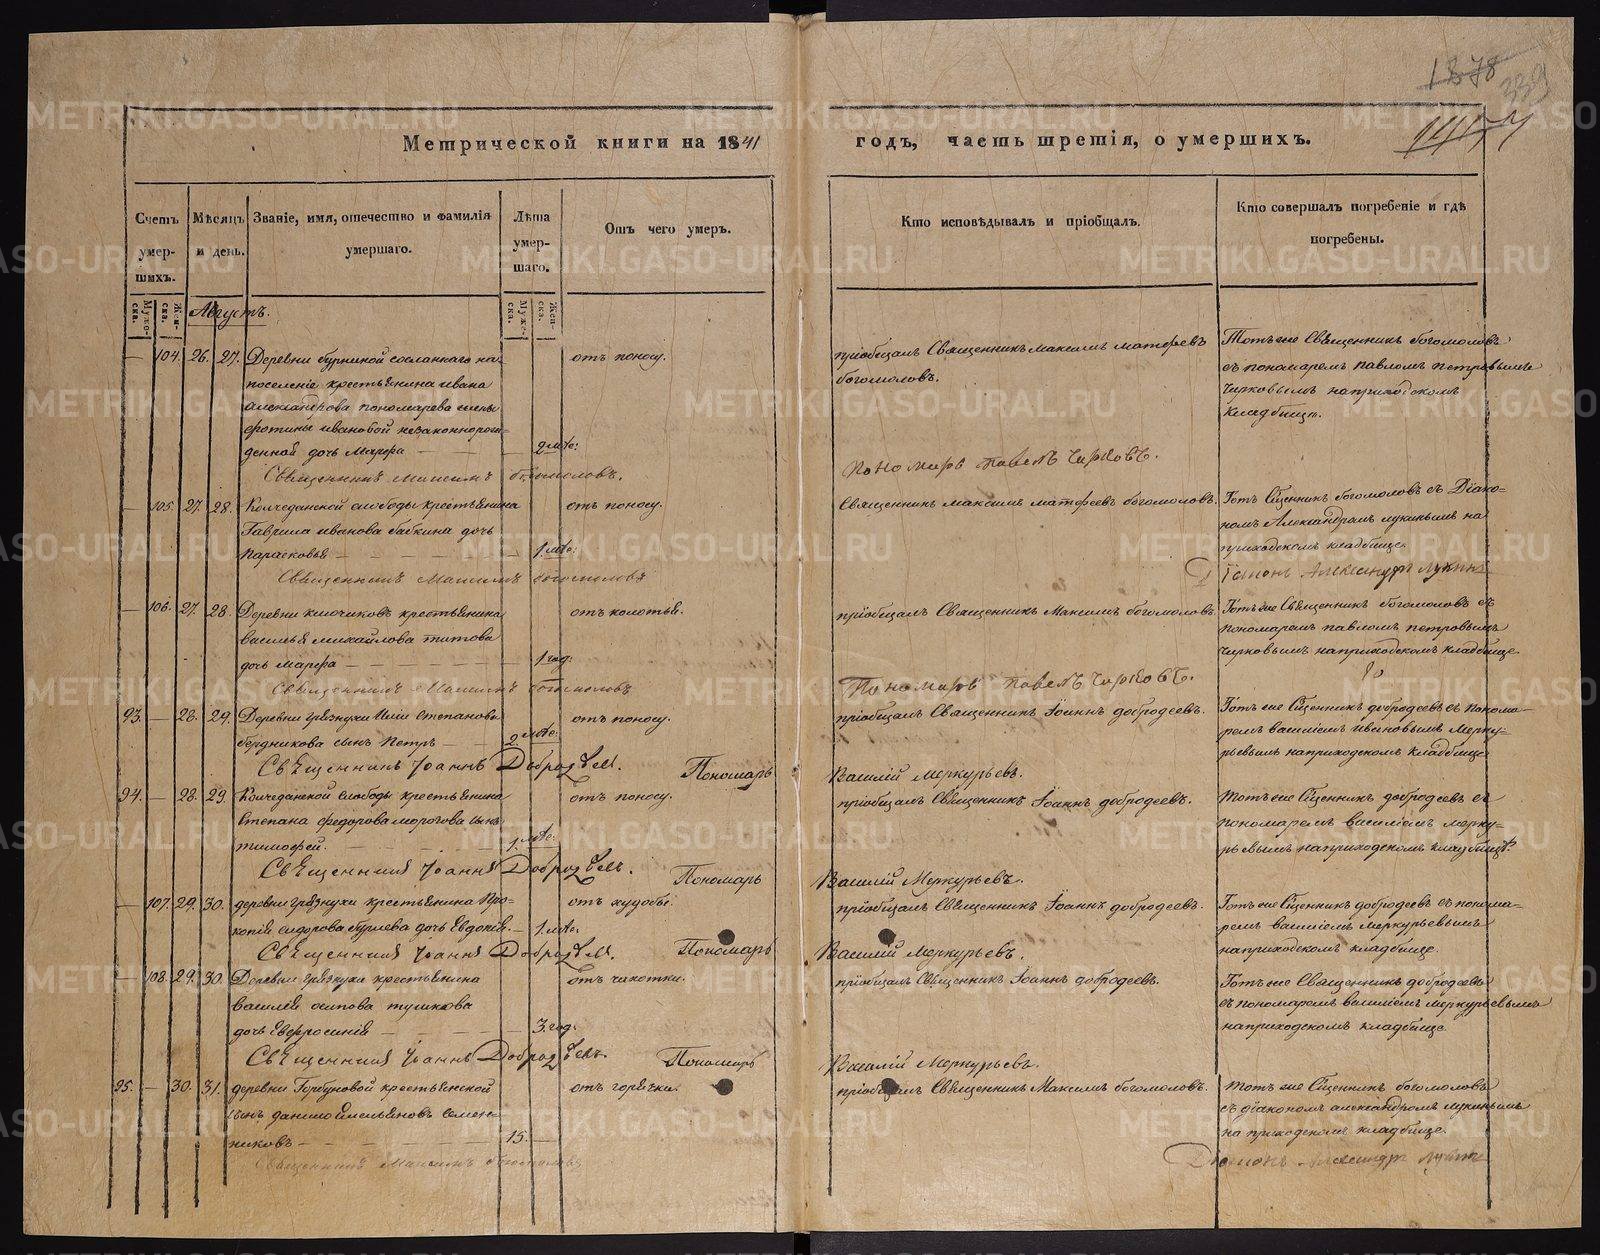 1878
339
Метрической книги на 1841
годъ, часть третія, о умершихъ.
Счетъ умер-шихъ.
Мѣсяцъ и день.
Званіе, имя, отечество и фамилія умершаго.
Лѣта умер-шаго.
Отъ чего умеръ.
Кто исповѣдывалъ и пріобщалъ.
Кто совершалъ погребеніе и гдѣ погребены.
Мужс-ска.
Жен-ска.
Муже-ска.
Жен-ска.
Августъ.
— 104. 26. 27. Деревни сосланнаго на
поселеніе крестьянина Ивана
Александрова Пономарева
Ивановой незаконнорож-
денной дочь Марфа — 2 лѣт:
отъ поносу.
пріобщалъ Священникъ Максимъ Матфеевъ
богомоловъ.
Тотъ же Священникъ богомоловъ
съ пономаремъ Павломъ Петровымъ
Чирковымъ на приходскомъ
кладбищѣ.
Священникъ Максимъ богомоловъ.
Пономарь Павелъ Чирковъ.
— 105. 27. 28. Колчеданской слободы крестьянина
Гаврила Иванова бабкина дочь
Парасковья — 1. лѣт:
отъ поносу.
Священникъ Максимъ Матфеевъ богомоловъ.
Тотъ Сщенникъ богомоловъ съ Діако-
номъ Александромъ Лукинымъ на
приходскомъ кладбищѣ.
Священникъ Максимъ богомоловъ
Діаконъ Александръ Лукинъ
— 106. 27. 28. Деревни Ключиковъ крестьянина
Василья Михайлова Титова
дочь Марфа — 1 год:
отъ колотья.
пріобщалъ Священникъ Максимъ богомоловъ.
Тотъ же Священникъ богомоловъ съ
пономаремъ Павломъ Петровымъ
Чирковымъ на приходскомъ кладбищѣ
Священникъ Максимъ богомоловъ
Пономарь Павелъ Чирковъ.
93. — 28. 29. Деревни грязнухи Иліи Степанова
бердникова сынъ Петръ — 2. лѣт:
отъ поносу.
пріобщалъ Священникъ Іоаннъ добродеевъ.
Тотъ же Сщенникъ добродеевъ съ поно-
маремъ Василіемъ Ивановымъ Мерку-
рьевымъ на приходскомъ кладбищѣ
Священникъ Іоаннъ Добродѣевъ.
Пономарь Василій Меркурьевъ.
94. — 28. 29. Колчеданской слободы крестьянина
Степана федорова морогова сынъ
тимофей. — 1. лѣт:
отъ поносу.
пріобщалъ Священникъ Іоаннъ добродеевъ.
Тотъ же Сщенникъ добродеевъ съ
пономаремъ Василіемъ Мерку-
рьевымъ на приходскомъ кладбищѣ.
Священникъ Іоаннъ Добродѣевъ.
Пономарь Василій Меркурьевъ.
— 107. 29. 30. деревни грязнухи крестьянина Про-
копія сидорова дочь Евдокія. — 1. лѣт:
отъ худобы.
пріобщалъ Священникъ Іоаннъ добродеевъ.
Тотъ же Сщенникъ добродеевъ съ понома-
ремъ Василіемъ Меркурьевымъ
на приходскомъ кладбищѣ.
Священникъ Іоаннъ Добродѣевъ.
Пономарь Василій Меркурьевъ.
— 108. 29. 30. Деревни грязнухи крестьянина
Василія осипова тушкова
дочь Евфросинія — 3. год:
отъ чахотки.
пріобщалъ Священникъ Іоаннъ добродеевъ.
Тотъ же Священникъ добродеевъ
съ пономаремъ Василіемъ Меркурьевымъ
на приходскомъ кладбищѣ
Священникъ Іоаннъ Добродѣевъ.
Пономарь Василій Меркурьевъ.
95. — 30. 31. деревни Горбуновой крестьянской
сынъ данило Емельяновъ Семен-
никовъ — 15. —
отъ горячки.
пріобщалъ Священникъ Максимъ богомоловъ.
Тотъ же Сщенникъ богомоловъ
съ діакономъ александромъ лукинымъ
на приходскомъ кладбищѣ.
Священникъ Максимъ богомоловъ
Діаконъ Александръ Лукинъ
METRIKI.GASO-URAL.RU